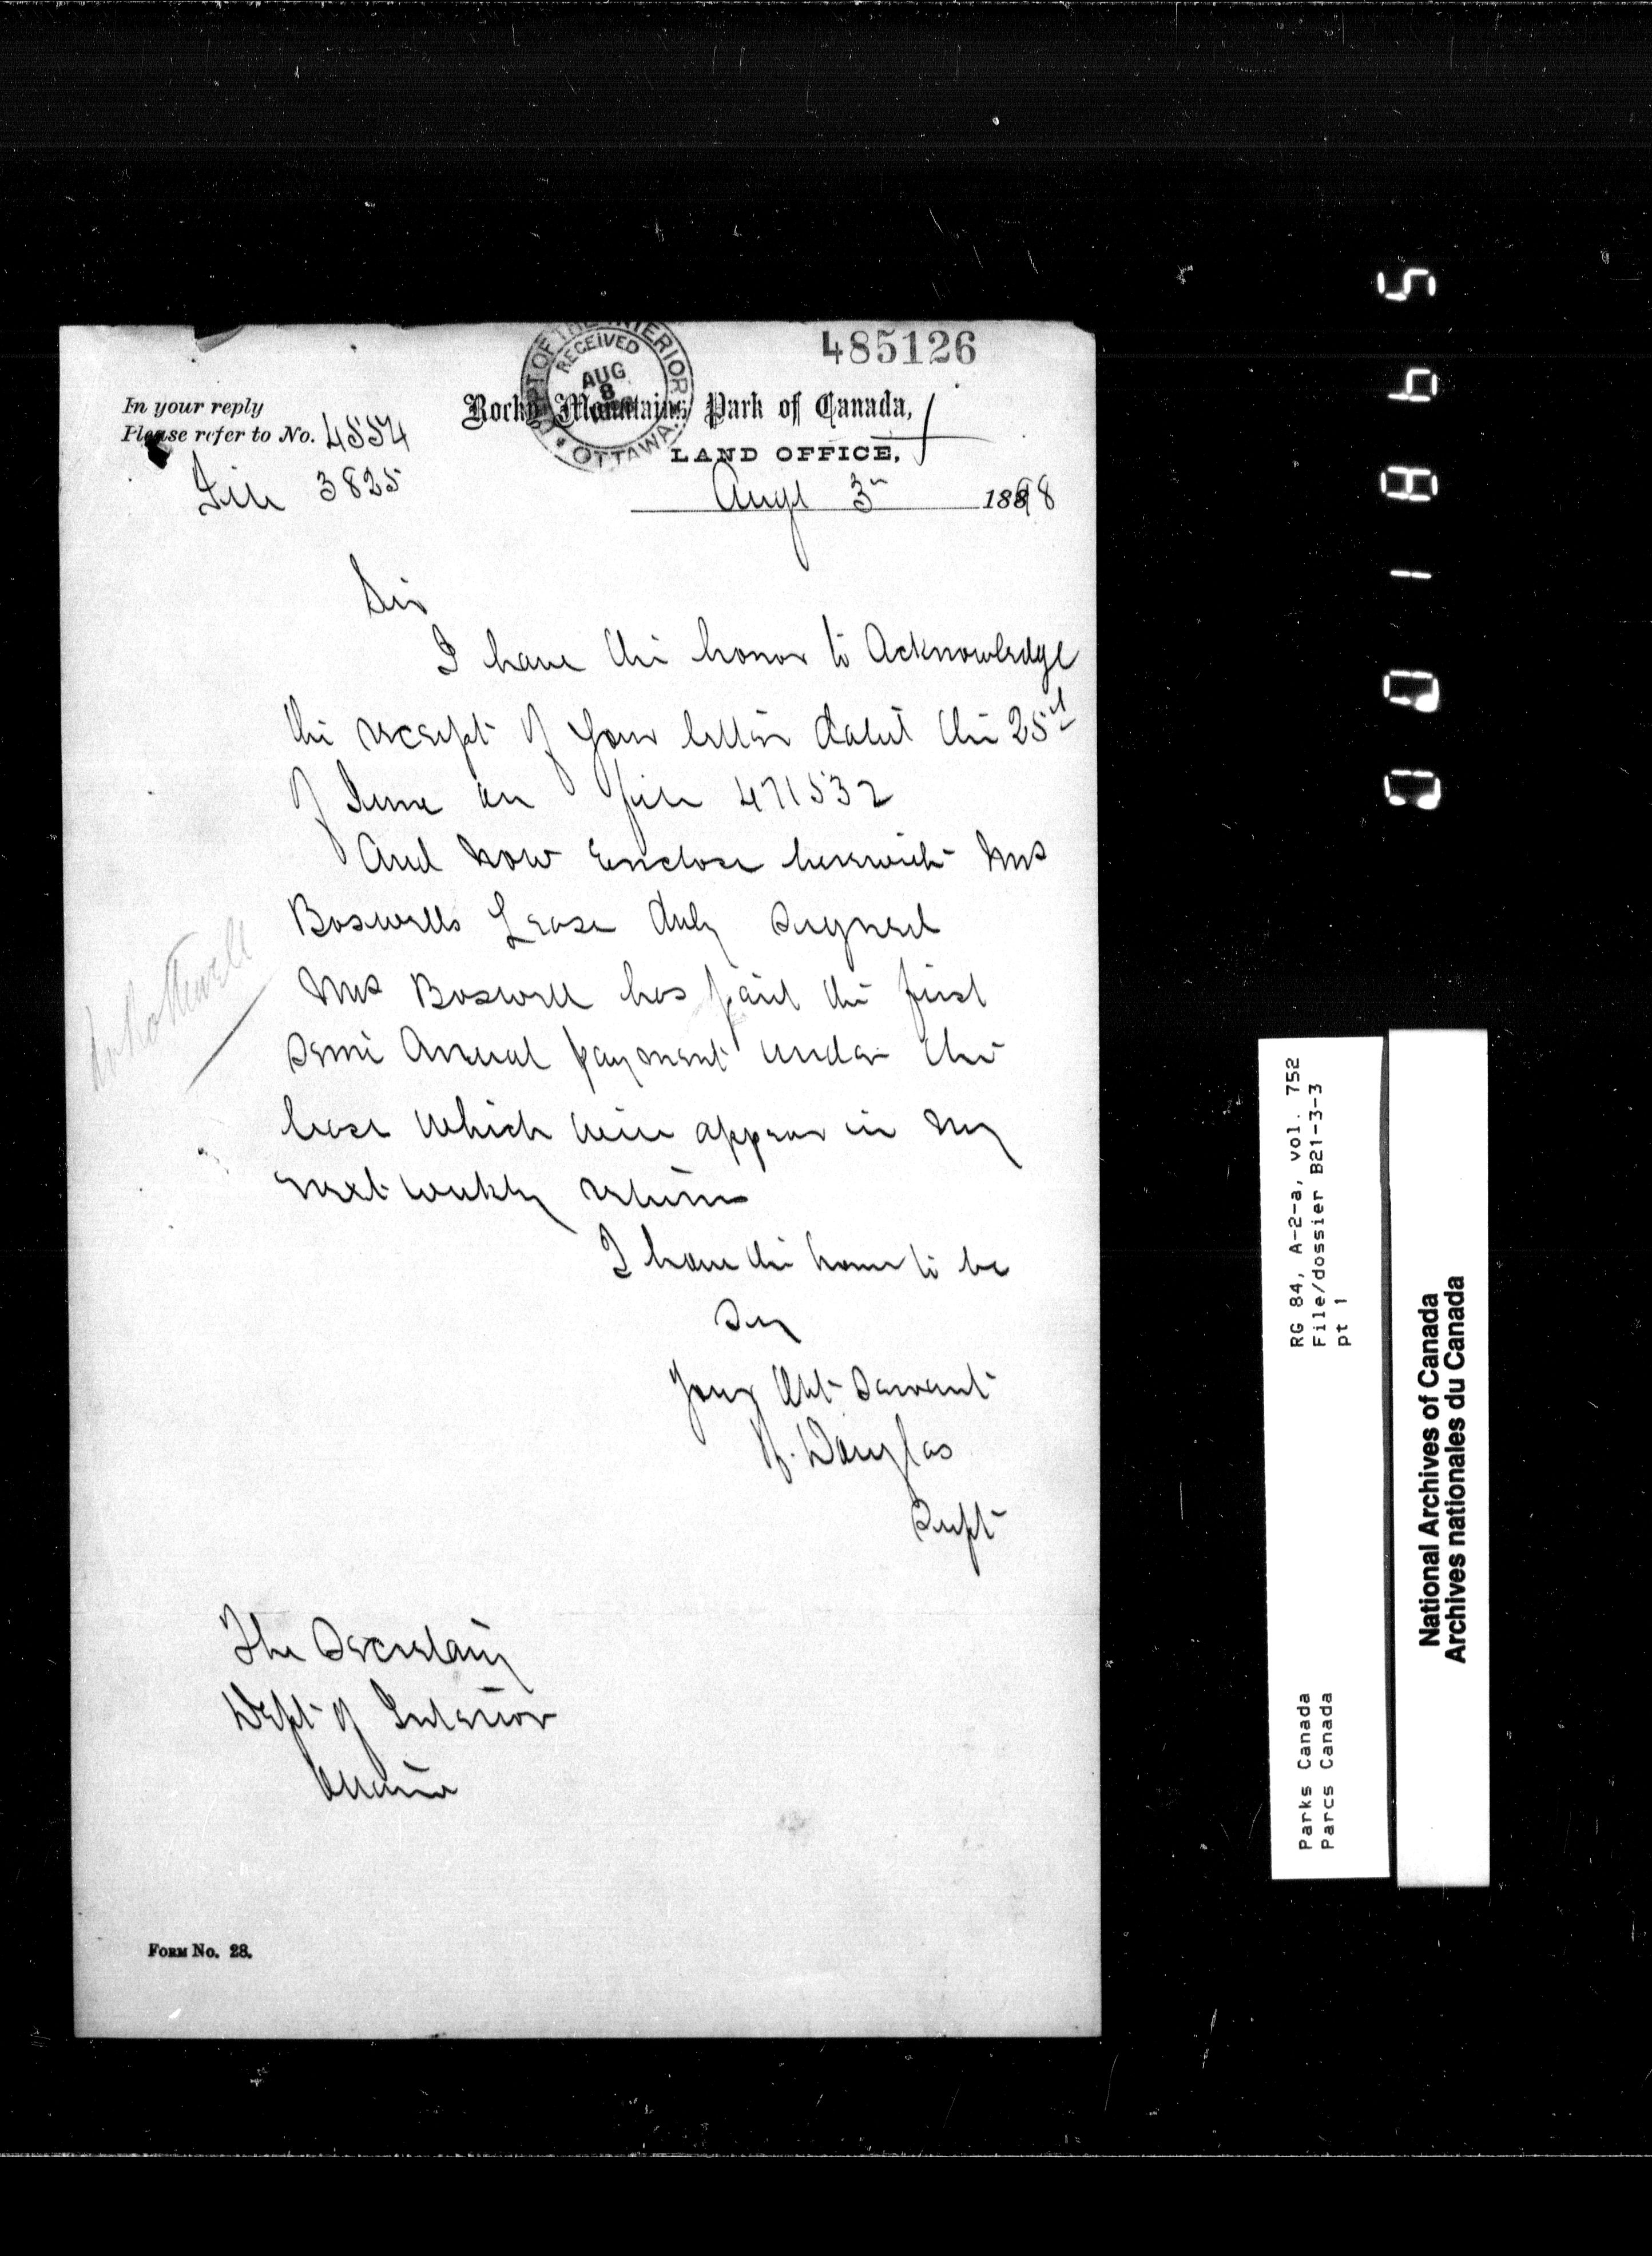 485126
DEPT OF THE INTERIOR
RECEIVED
AUG
8
OTTAWA
In your reply
Please refer to No. 4554
File 3825
Rocky Mountains Park of Canada,
LAND OFFICE,
Augt 3rd 1898
Sir
I have the honor to Acknowledge
the receipt of your letter dated the 25th
of June on file 471532
And now Enclose herewith Mrs
Boswells Lease duly signed
Mrs Boswell has paid the first
Semi Annual payment under the
lease which will appear in my
next weekly returns
I have the honor to be
Sir
Your Obt Servant
H. Douglas
Supt
The Secretary
Dept of Interior
Ottawa
FORM No. 28.
0018165
RG 84, A-2-a, vol. 752
File/dossier B21-3-3
pt 1
Parks Canada
Parcs Canada
National Archives of Canada
Archives nationales du Canada